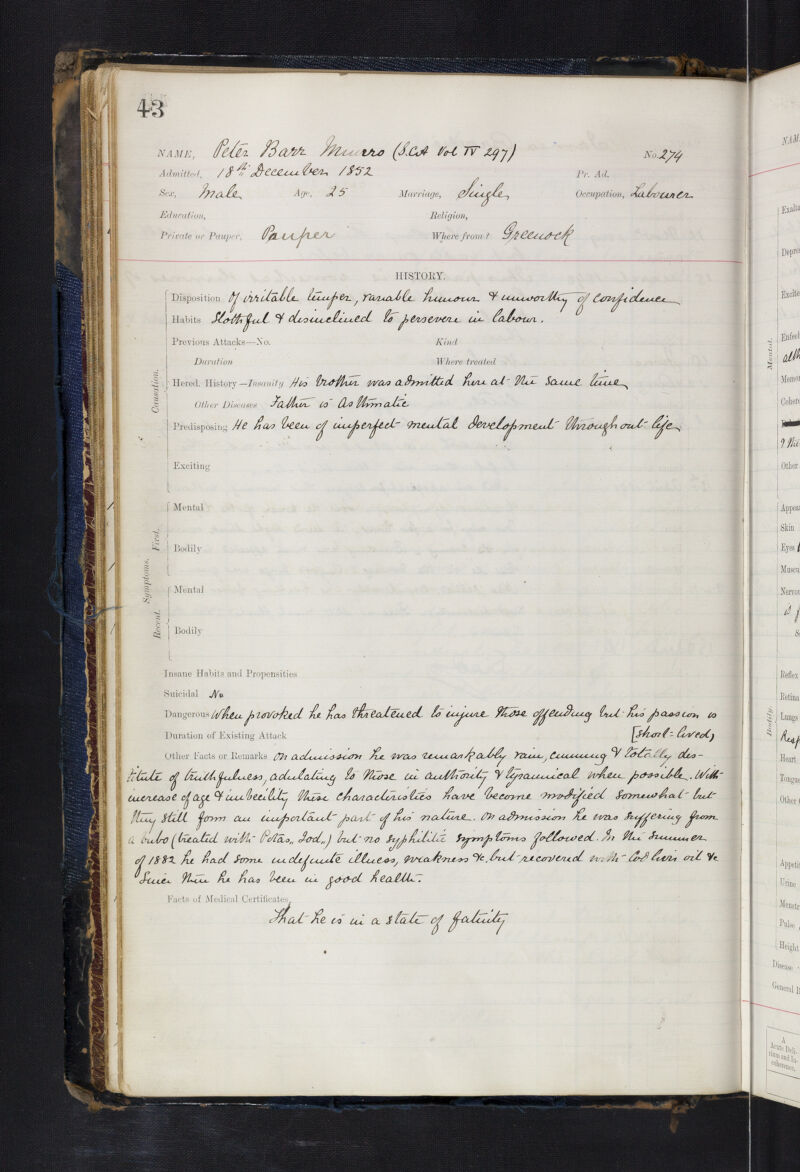 43
NAME, Peter Barr Munro (S.C.A Vol IV 297) No. 274
Admitted, 18th December 1852 Pr. Ad.
Sex, Male Age, 25 Marriage, Single Occupation, Labourer
Education, Religion,
Private or Pauper, Pauper Where from? Greenock
HISTORY.
Disposition Of irritable temper, variable humour & unworthy of confidence
Habits Slothful & disinclined to persevere in labour.
Previous Attacks—No. Kind
Duration Where treated
Causation.
Hered. History—Insanity His brother was admitted here at the same time
Other Diseases Father is asthmatic
Predisposing He has been of imperfect mental development throughout life
Exciting
Symptoms.
First.
Mental
Bodily
Recent.
Mental
Bodily
Insane Habits and Propensities
Suicidal No
Dangerous When provoked he has threatened to injure those offending but his passion is
Duration of Existing Attack [short-lived,
Other Facts or Remarks On admission he was remarkably vain, cunning & totally des-
titute of truthfulness, adulating to those in authority & tyrannical when possible. With
increase of age & imbecility these characteristics have become modified somewhat but
they still form an important part of his nature. On admission he was suffering from
a bubo (treated with Potas. Iod.,) but no syphilitic symptoms followed. In the summer
of 1882 he had some indefinite illness, weakness &c. but recovered with Cod liver oil &c
Since then he has been in good health.
Facts of Medical Certificates,
That he is in a state of fatuity
NAM
Exalta
Depre
Excite
Mental.
Enfeeb
Memor
Cohere
Other
Appear
Skin
Eyes
Muscu
Nervou
Reflex
Retina
Bodily.
Lungs
Heart
Tongue
Other
Appetit
Urine
Menstr
Pulse
Height
Disease
General
A
Acute Deli-
rium and In-
coherence.